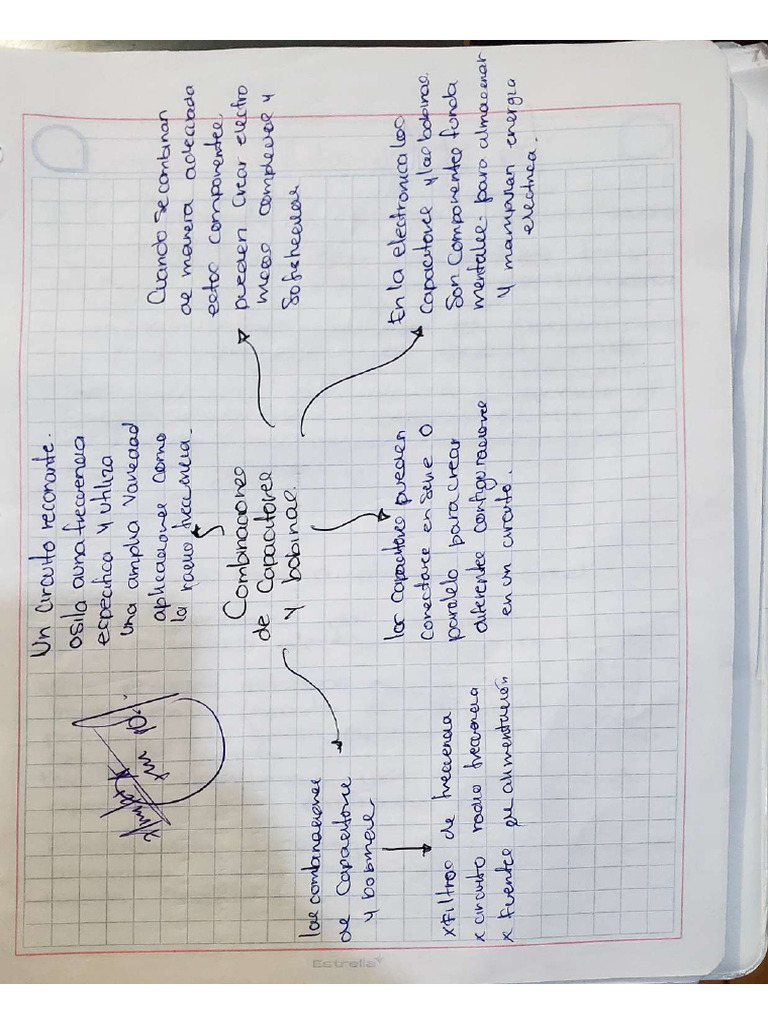 Un circuito reconante.
osila auna frecuencia
especifica y utiliza
una amplia variedad
aplicaciones como
la radio frecuencia.
Cuando se combinan
de manera adecuada
estos componentes
pueden crear electro
complejos y
Combinaciones
de Capacitores
y bobinas.
las combinaciones
de capacitores
y bobinas
x Filtros de frecuencia
x circuito radio frecuencia
x Fuentes de alimentación
los capacitores pueden
conectarse en serie o
paralelo para crear
diferentes configuraciones
en un circuito.
En la electronica los
Capacitores y las bobinas.
Son Componentes funda
mentales para almacenar
y manipulan energia
electrica.
Estrella